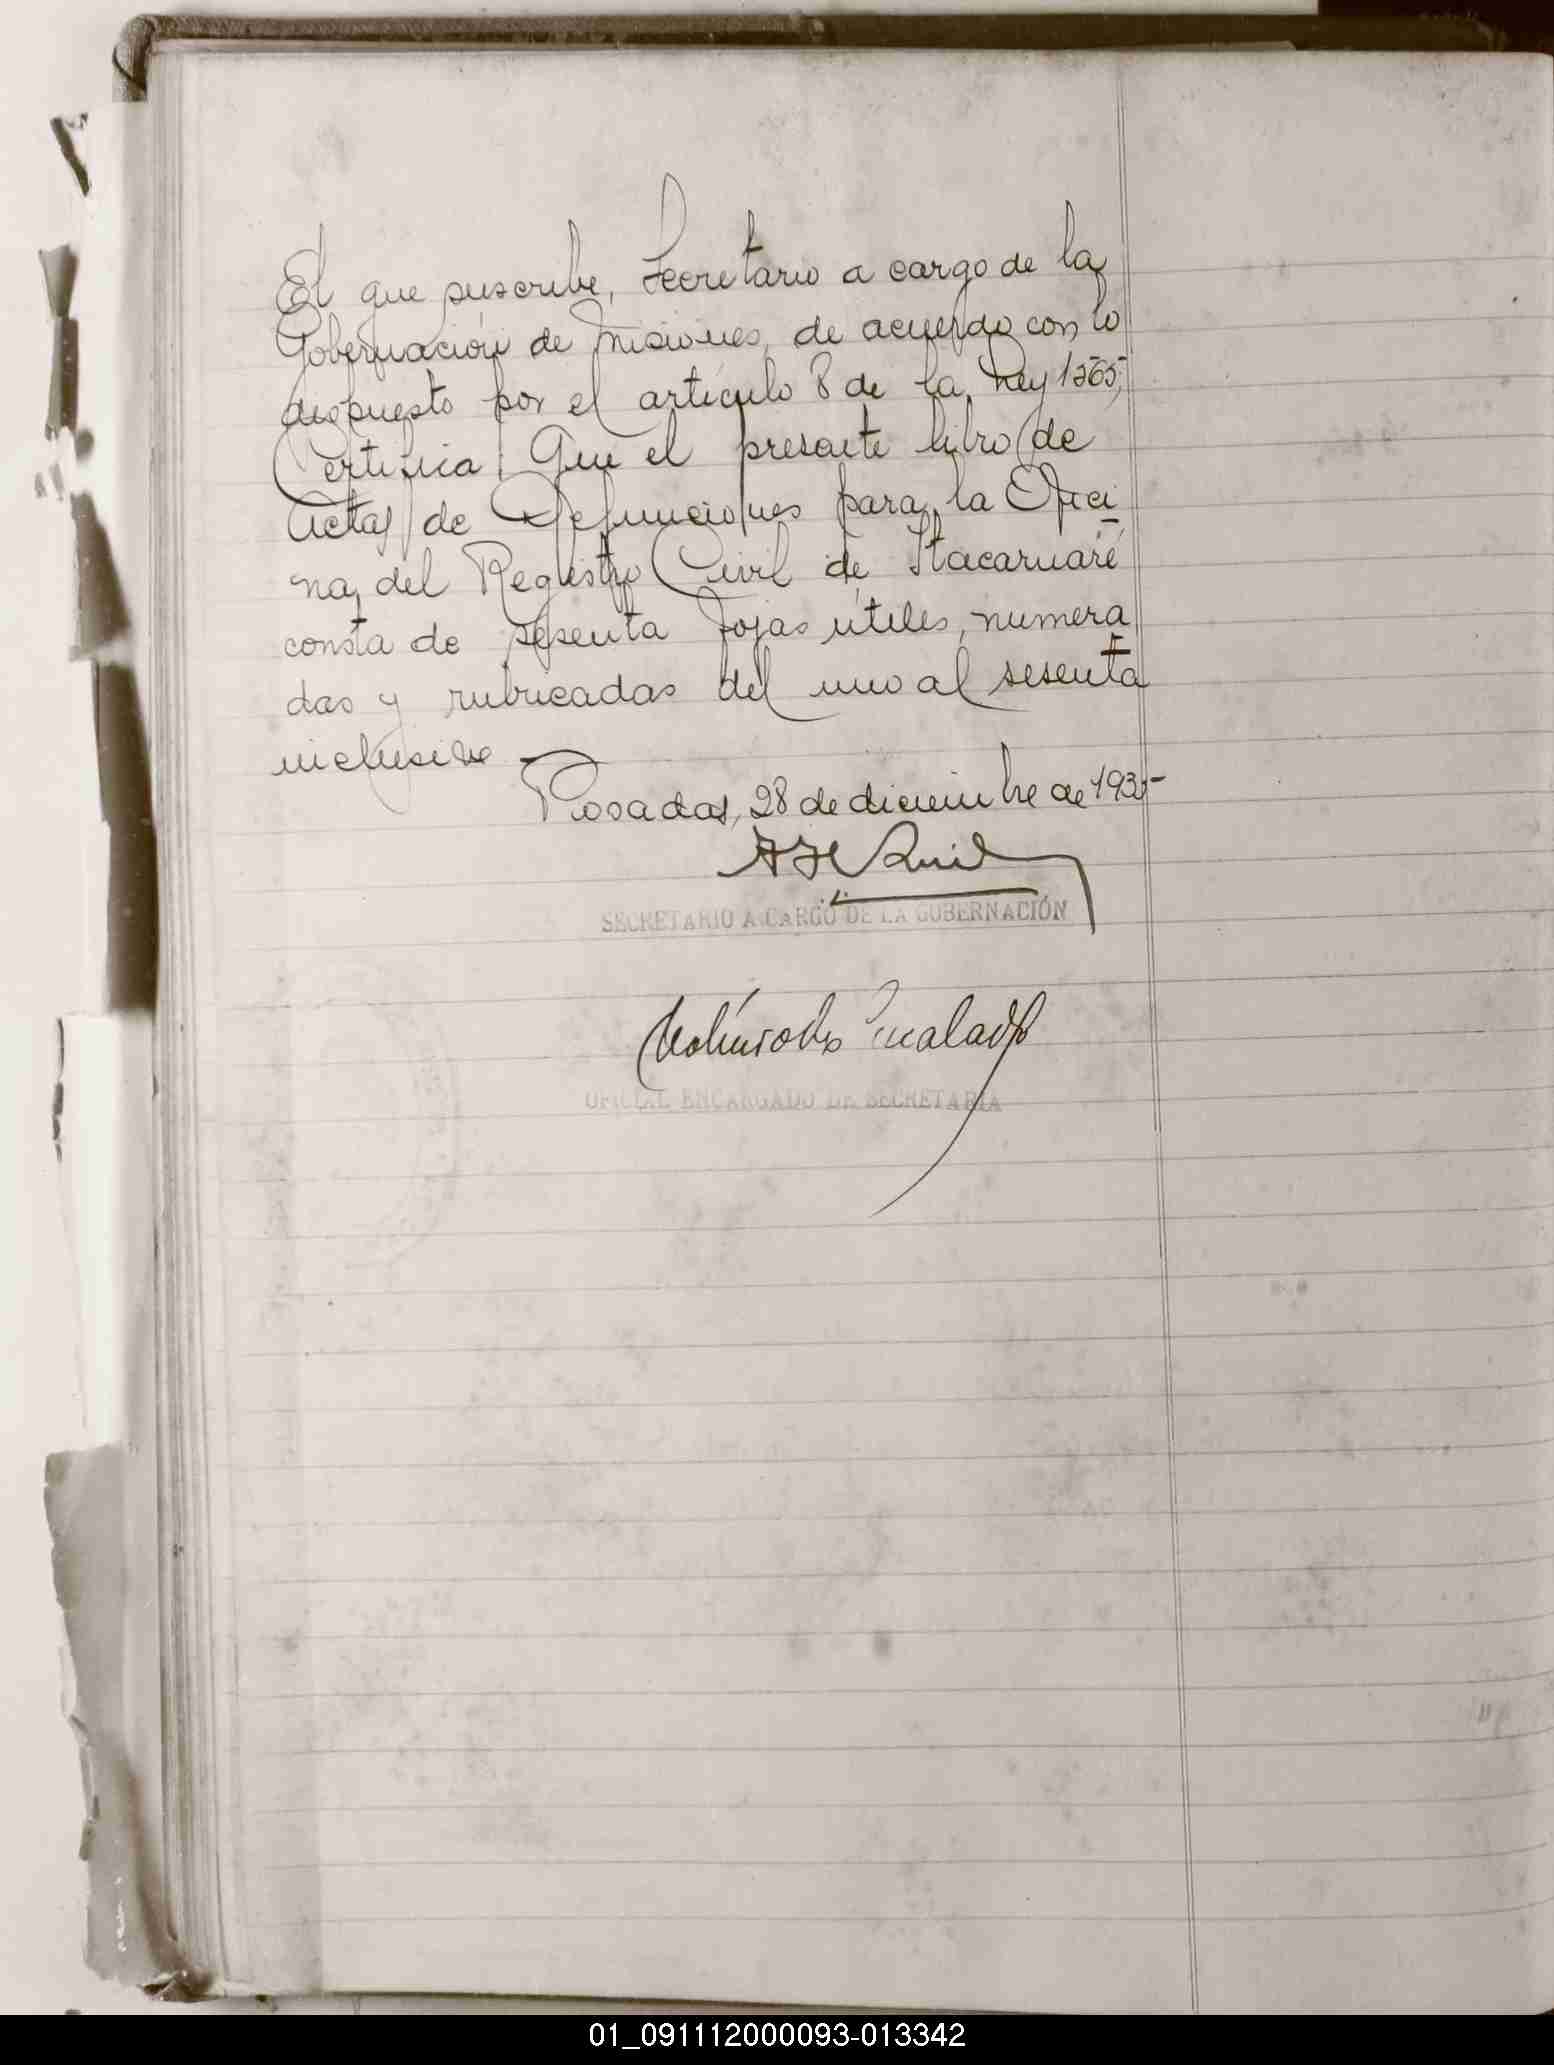 El que suscribe, Secretario a cargo de la
Gobernación de Misiones, de acuerdo con lo
dispuesto por el artículo 8 de la Ley 1565,
Certifica: Que el presente libro de
Actas de Defunciones para la Ofici
na del Registro Civil de Itacaruaré
consta de sesenta fojas útiles, numera
das y rubricadas del uno al sesenta
inclusive
Posadas, 28 de diciembre de 1935
SECRETARIO A CARGO DE LA GOBERNACIÓN
OFICIAL ENCARGADO DE SECRETARIA
01_091112000093-013342